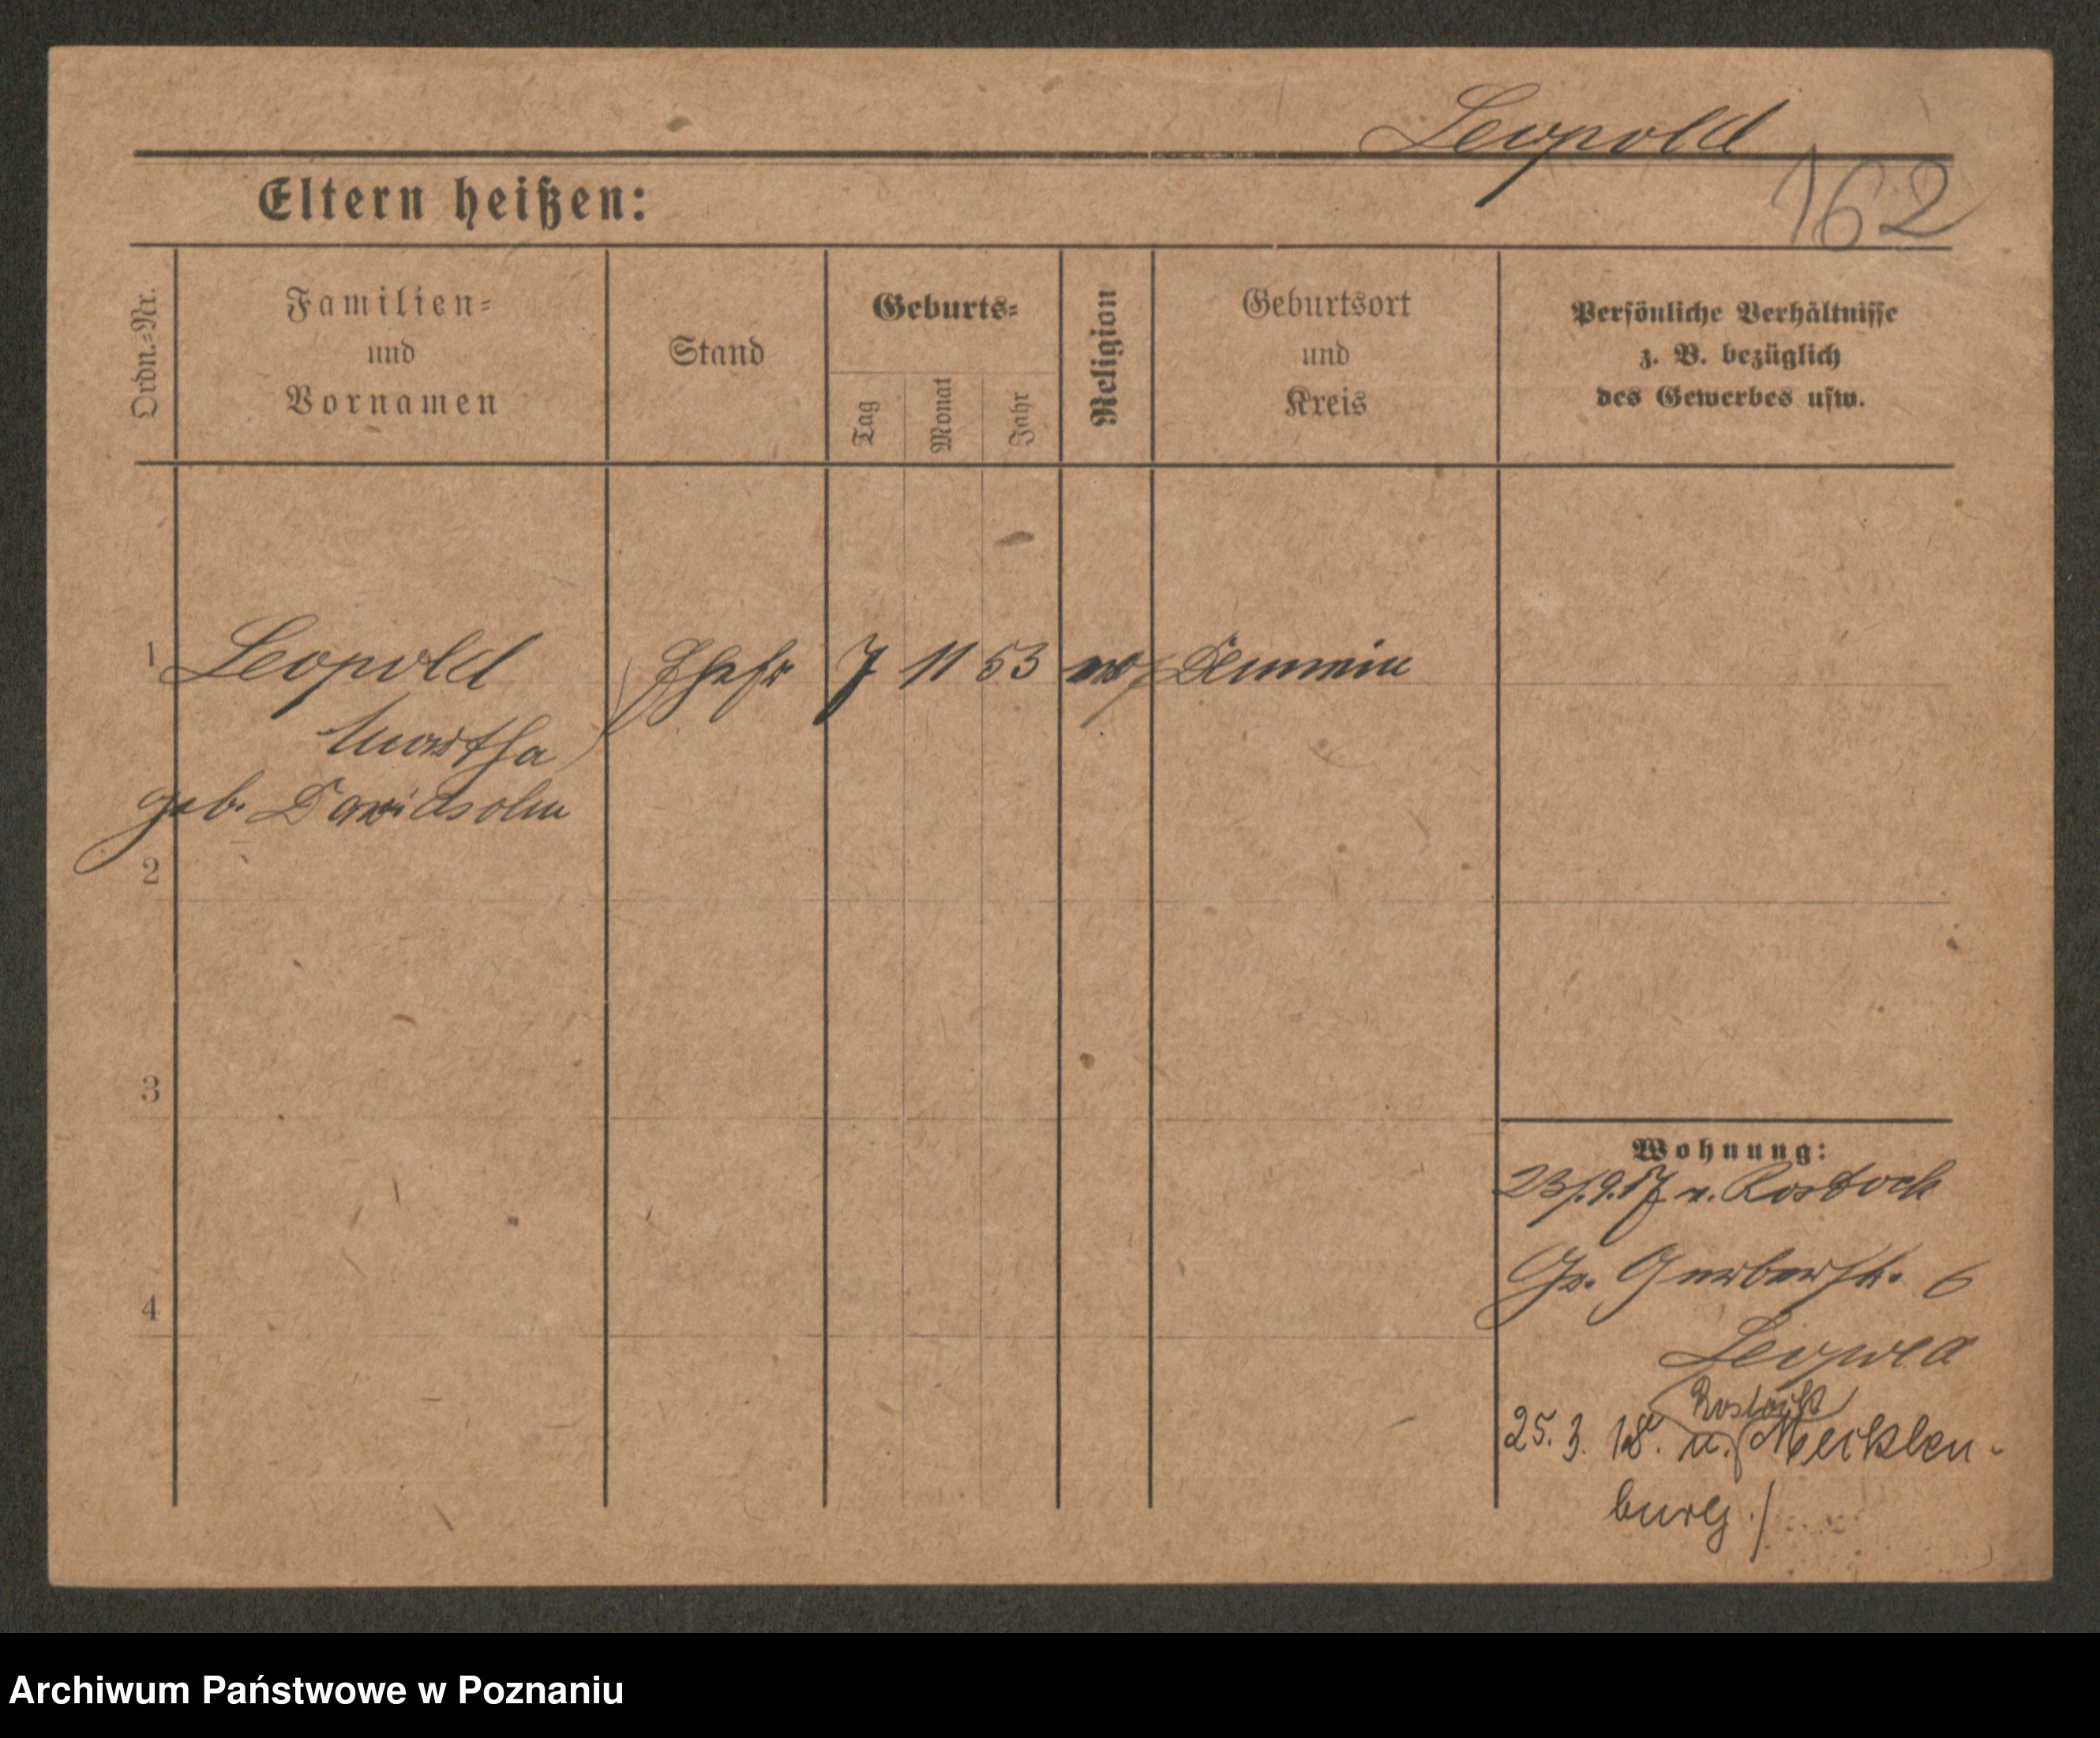 Leopold
162
Eltern heißen:
Ordn.-Nr.
Familien-
und
Vornamen
Stand
Geburts-
Tag
Monat
Jahr
Religion
Geburtsort
und
Kreis
Persönliche Verhältnisse
z. B. bezüglich
des Gewerbes usw.
1 Leopold 7 11 53 Demmin
Martha
geb. Davidsohn
2
3
4
Wohnung:
23/.9.17 n. Rostock
Gr. Gerberstr. 6
Leopold
Rostock
25. 3. 18. n. Mecklen-
burg./
Archiwum Państwowe w Poznaniu